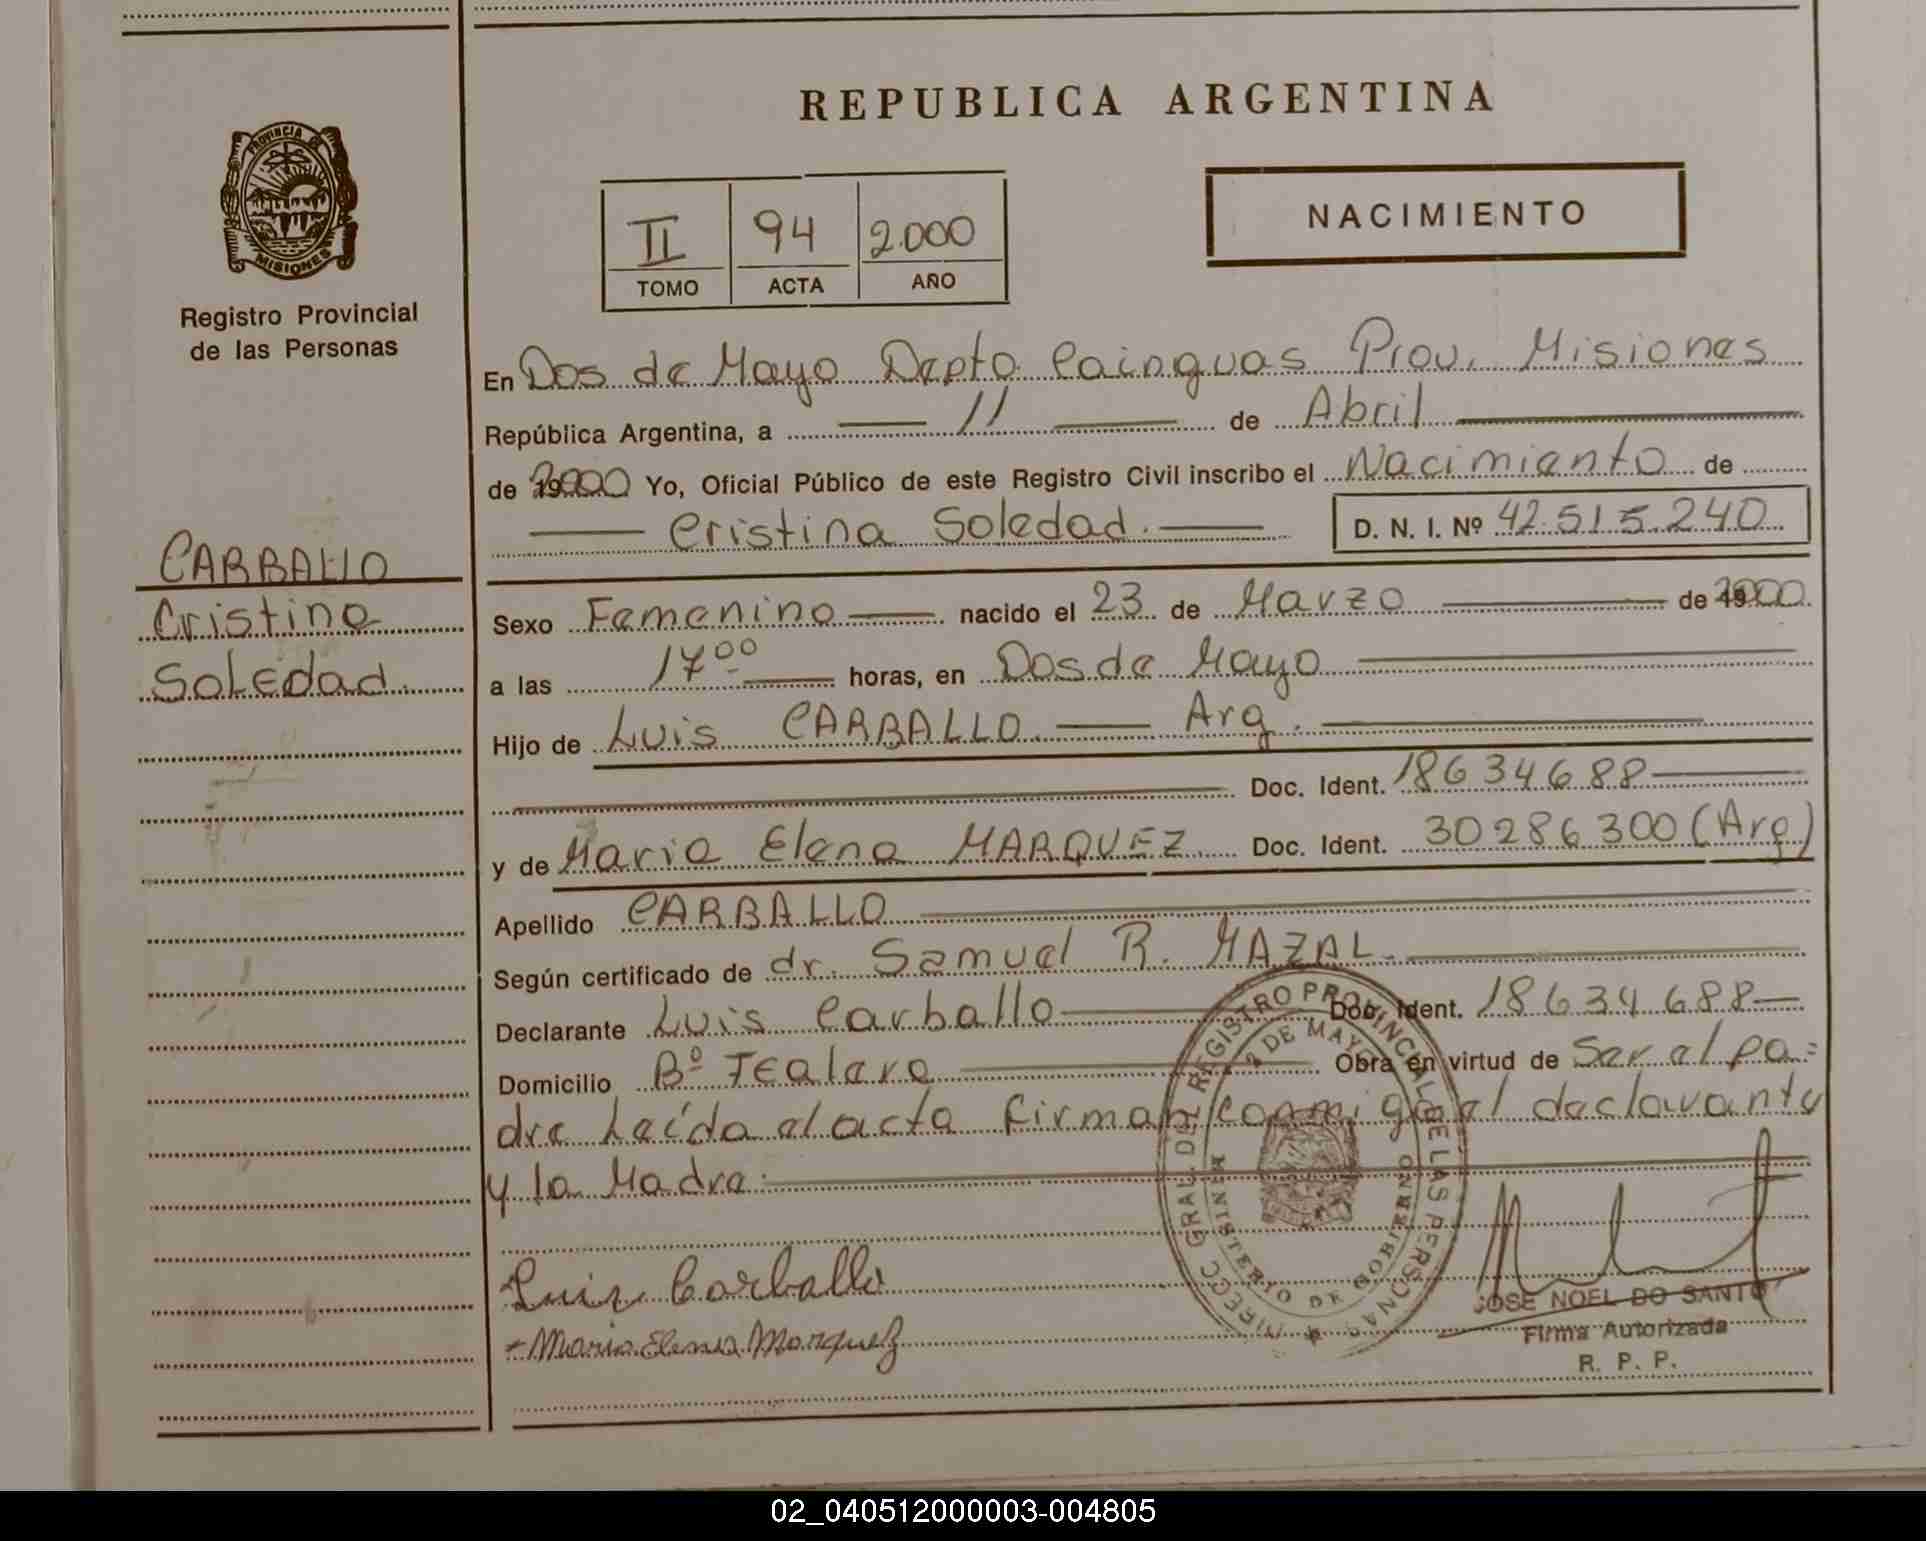 REPUBLICA ARGENTINA
PROVINCIA DE MISIONES
Registro Provincial
de las Personas
II 94 2.000
TOMO ACTA AÑO
NACIMIENTO
En Dos de Mayo Depto Cainguas Prov. Misiones
República Argentina, a 11 de Abril
de 2000 Yo, Oficial Público de este Registro Civil inscribo el Nacimiento de
Cristina Soledad. D. N. I. Nº 42.515.240
CARBALLO
Cristina
Soledad
Sexo Femenino nacido el 23 de Marzo de 2000
a las 17 00 horas, en Dos de Mayo
Hijo de Luis CARBALLO. Arg.
Doc. Ident. 18634688
y de Maria Elena MARQUEZ Doc. Ident. 30286300 (Arg)
Apellido CARBALLO
Según certificado de dr. Samuel R. MAZAL.
Declarante Luis Carballo Doc. Ident. 18634688
Domicilio Bº Tealera Obra en virtud de Ser el pa=
dre Leída el acta firman conmigo el declarante
y la Madre.
DIRECC GRAL DEL REGISTRO PROVINCIAL DE LAS PERSONAS
2 DE MAYO
MINISTERIO DE GOBIERNO
Luis Carballo
Maria Elena Marquez
JOSE NOEL DO SANTO
Firma Autorizada
R. P. P.
02_040512000003-004805